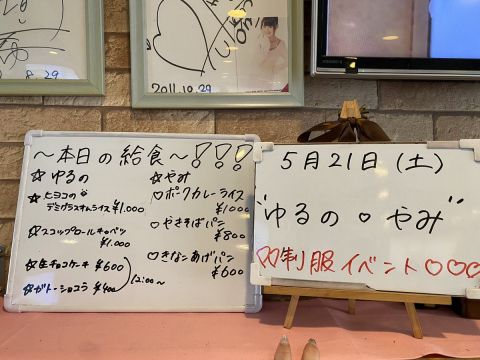 8.29
2011.10.29
～本日の給食～!!!
☆ゆるの
ヒヨコの
デミグラスオムライス ¥1.000
☆スコップロールキャベツ
¥1.000
☆生チョコケーキ ¥600
☆ガトーショコラ ¥400
12:00～
☆やみ
♡ポークカレーライス
¥1000
♡やきそばパン
¥800
♡きなこあげパン
¥600
5月21日(土)
"ゆるの♡やみ"
♡♡制服イベント♡♡♡